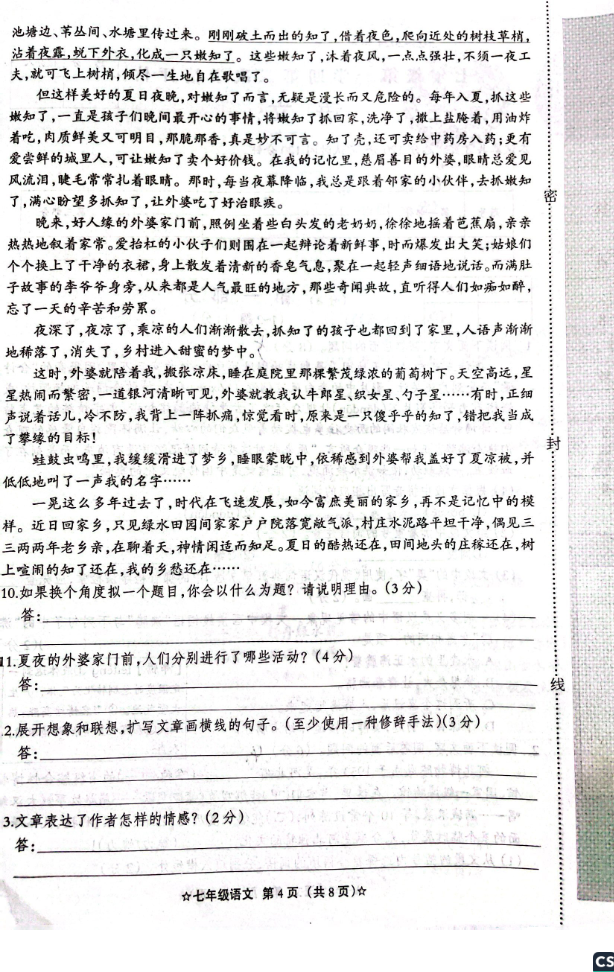 池塘边、苇丛间、水塘里传过来。刚刚破土而出的知了,借着夜色,爬向近处的树枝草梢,
沾着夜露,蜕下外衣,化成一只嫩知了。这些嫩知了,沐着夜风,一点点强壮,不须一夜工
夫,就可飞上树梢,倾尽一生地自在歌唱了。
但这样美好的夏日夜晚,对嫩知了而言,无疑是漫长而又危险的。每年入夏,抓这些
嫩知了,一直是孩子们晚间最开心的事情,将嫩知了抓回家,洗净了,撒上盐腌着,用油炸
着吃,肉质鲜美又可明目,那脆那香,真是妙不可言。知了壳,还可卖给中药房入药;更有
爱尝鲜的城里人,可让嫩知了卖个好价钱。在我的记忆里,慈眉善目的外婆,眼睛总爱见
风流泪,睫毛常常扎着眼睛。那时,每当夜幕降临,我总是跟着邻家的小伙伴,去抓嫩知
了,满心盼望多抓知了,让外婆吃了好治眼疾。
晚来,好人缘的外婆家门前,照例坐着些白头发的老奶奶,徐徐地摇着芭蕉扇,亲亲
热热地叙着家常。爱抬杠的小伙子们则围在一起辩论着新鲜事,时而爆发出大笑;姑娘们
个个换上了干净的衣裙,身上散发着清新的香皂气息,聚在一起轻声细语地说话。而满肚
子故事的李爷爷身旁,从来都是人气最旺的地方,那些奇闻典故,直听得人们如痴如醉,
忘了一天的辛苦和劳累。
夜深了,夜凉了,乘凉的人们渐渐散去,抓知了的孩子也都回到了家里,人语声渐渐
地稀落了,消失了,乡村进入甜蜜的梦中。
这时,外婆就陪着我,搬张凉床,睡在庭院里那棵繁茂绿浓的葡萄树下。天空高远,星
星热闹而繁密,一道银河清晰可见,外婆就教我认牛郎星、织女星、勺子星……有时,正细
声说着话儿,冷不防,我背上一阵抓痛,惊觉看时,原来是一只傻乎乎的知了,错把我当成
了攀缘的目标!
蛙鼓虫鸣里,我缓缓滑进了梦乡,睡眼蒙眬中,依稀感到外婆帮我盖好了夏凉被,并
低低地叫了一声我的名字……
一晃这么多年过去了,时代在飞速发展,如今富庶美丽的家乡,再不是记忆中的模
样。近日回家乡,只见绿水田园间家家户户院落宽敞气派,村庄水泥路平坦干净,偶见三
三两两年老乡亲,在聊着天,神情闲适而知足。夏日的酷热还在,田间地头的庄稼还在,树
上喧闹的知了还在,我的乡愁还在……
10.如果换个角度拟一个题目,你会以什么为题?请说明理由。(3分)
答:
11.夏夜的外婆家门前,人们分别进行了哪些活动?(4分)
答:
2.展开想象和联想,扩写文章画横线的句子。(至少使用一种修辞手法)(3分)
答:
3.文章表达了作者怎样的情感?(2分)
答:
☆七年级语文 第4页(共8页)☆
密
封
线
CS